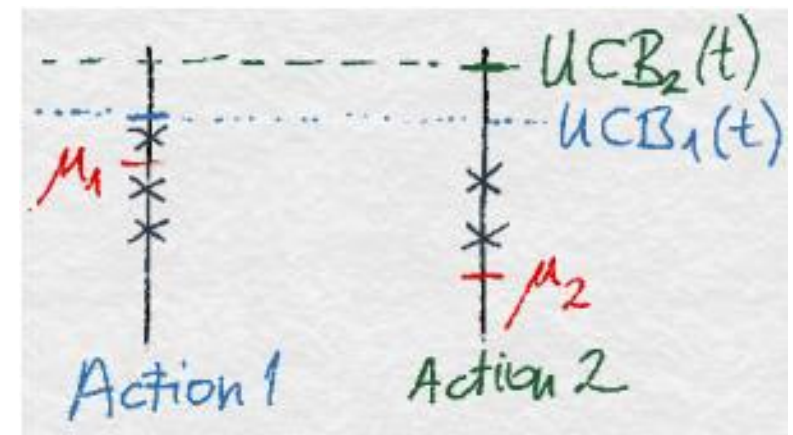 UCB₂(t)
UCB₁(t)
μ₁
μ₂
Action 1
Action 2